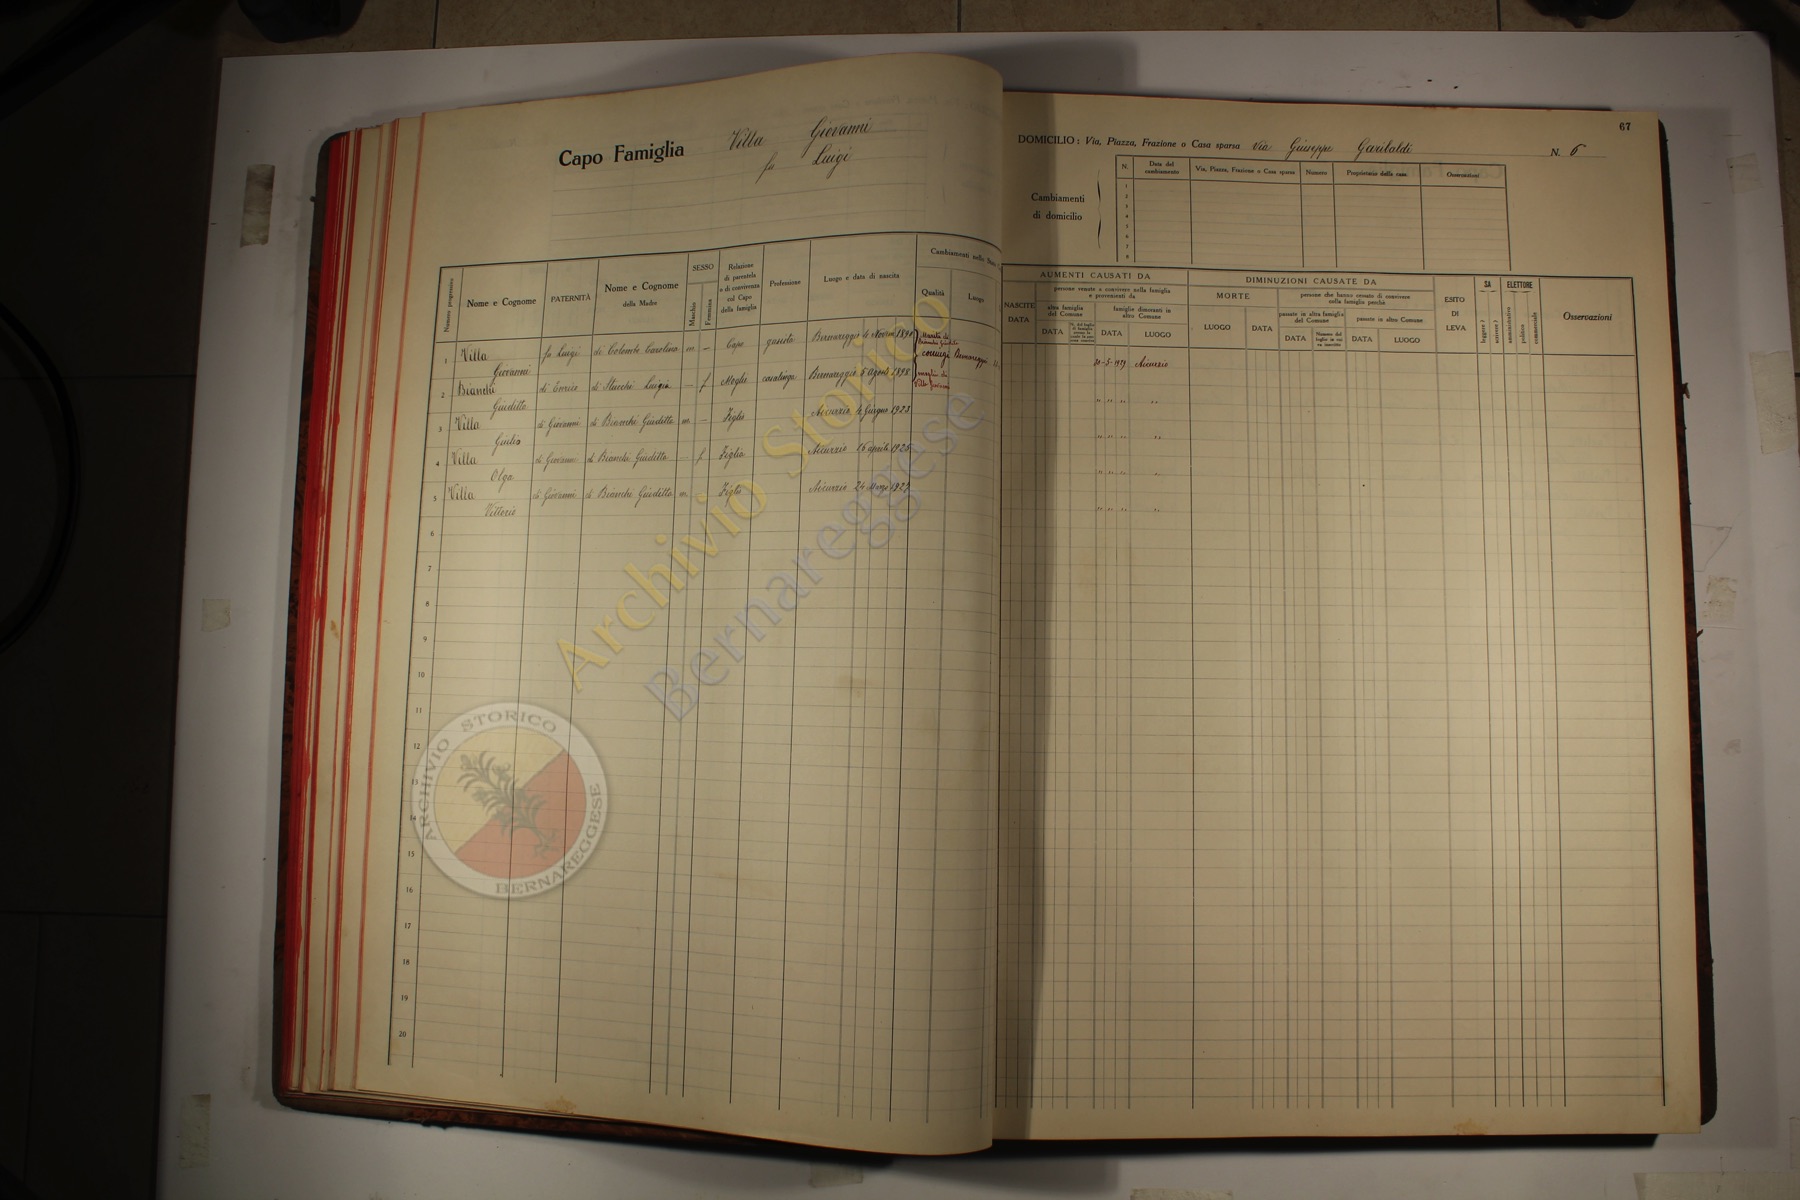 67
Capo Famiglia Villa Giovanni
fu Luigi
DOMICILIO: Via, Piazza, Frazione o Casa sparsa Via Giuseppe Garibaldi N. 6
Cambiamenti
di domicilio
N. Data del cambiamento Via, Piazza, Frazione o Casa sparsa Numero Proprietario della casa Osservazioni
1
2
3
4
5
6
7
8
Numero progressivo Nome e Cognome PATERNITÀ Nome e Cognome della Madre SESSO Maschio Femmina Relazione di parentela o di convivenza col Capo della famiglia Professione Luogo e data di nascita Cambiamenti nello Qualità Luogo
AUMENTI CAUSATI DA
NASCITE DATA
persone venute a convivere nella famiglia e provenienti da
altra famiglia del Comune DATA
famiglie dimoranti in altro Comune DATA LUOGO
DIMINUZIONI CAUSATE DA
MORTE LUOGO DATA
persone che hanno cessato di convivere nella famiglia perchè
passate in altra famiglia del Comune DATA
passate in altro Comune DATA LUOGO
ESITO DI LEVA
SA leggere? scrivere?
ELETTORE amministrativo politico commerciale
Osservazioni
1 Villa Giovanni fu Luigi di Colombo Carolina m. — Capo Bernareggio 4 1890 coniugi Bernareggio 21-3-1929 Aicurzio
2 Bianchi Giuditta di Enrico di Stucchi Luigia — f Moglie casalinga Bernareggio 5 Agosto 1898 moglie di Villa Giovanni " " " "
3 Villa Giulio di Giovanni di Bianchi Giuditta m. — Figlio Aicurzio 4 Giugno 1923 " " " "
4 Villa Olga di Giovanni di Bianchi Giuditta — f Figlia Aicurzio 16 aprile 1925 " " " "
5 Villa Vittorio di Giovanni di Bianchi Giuditta m. Figlio Aicurzio 24 Marzo 1927 " " " "
6
7
8
9
10
11
12
13
14
15
16
17
18
19
20
Archivio Storico
Bernareggese
ARCHIVIO STORICO
BERNAREGGESE